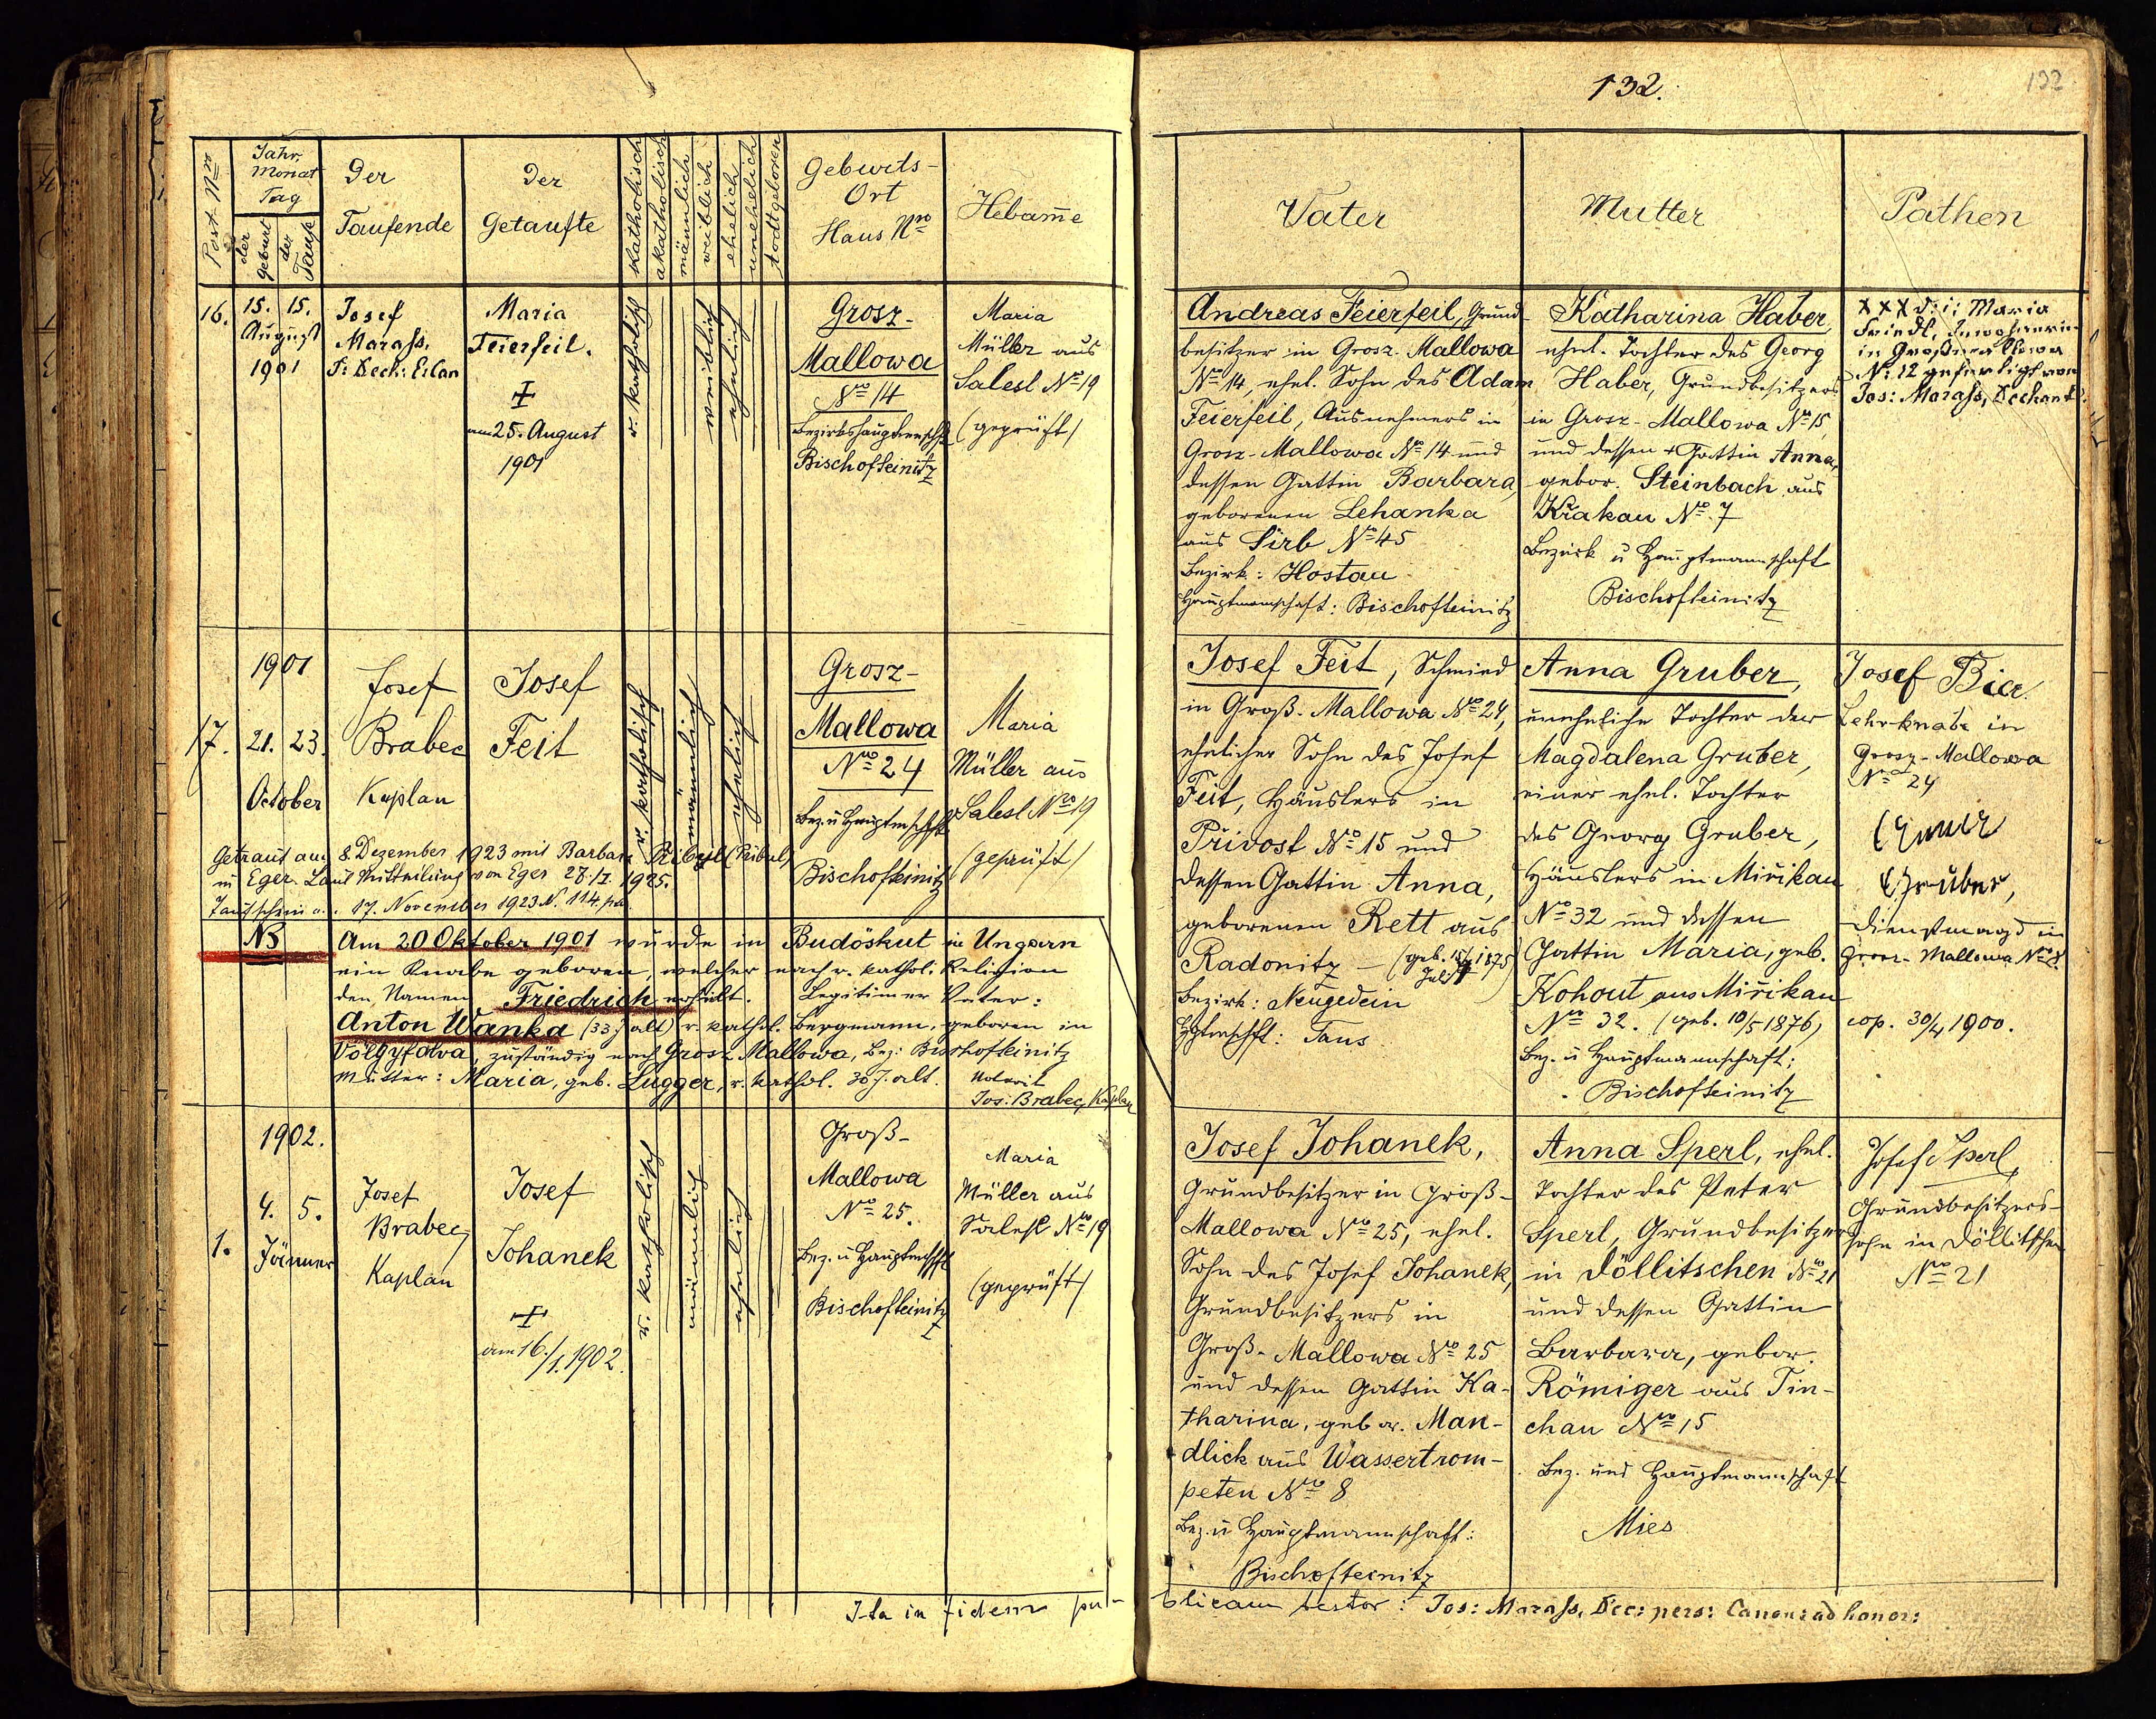 132.
132
Post Nro
Jahr,
Monat
Tag
der
Geburt
der
Taufe
Der
Taufende
Der
Getaufte
katholisch
akatholisch
männlich
weiblich
ehelich
unehelich
todtgeboren
Geburts-
Ort
Haus Nro
Hebam̄e
Vater
Mutter
Pathen
16.
15. 15.
August
1901
Josef
Marass,
Maria
Feierfeil.
+
am 25. August
1901
r. katholisch
weiblich
ehelich
Grosz-
Mallowa
No 14
Bezirkshauptmschft
Bischofteinitz
Maria
Müller aus
Salesl No 19
(geprüft)
Andreas Feierfeil, Grund-
besitzer in Grosz-Mallowa
No 14, ehel. Sohn des Adam
Feierfeil, Ausnehmers in
Grosz-Mallowa No 14 und
dessen Gattin Barbara,
geborenen Lehanka
aus Sirb No 45
Bezirk: Hostau
Hauptmannschaft: Bischofteinitz
Katharina Haber,
ehel. Tochter des Georg
Haber, Grundbesitzers
in Grosz-Mallowa No 15,
und dessen + Gattin Anna,
gebor. Steinbach aus
Křakau No 7
Bezirk u Hauptmannschaft
Bischofteinitz
XXX d: i: Maria
Friedl, Inwohnerin
in Großmallowa
N: 12 gefertigt von
Jos: Marass, Dechant.
1901
17.
21. 23.
October
Josef
Brabec
Kaplan
Josef
Feit
r. katholisch
männlich
ehelich
Grosz-
Mallowa
Nro 24
Bez. u Hauptmschft
Bischofteinitz
Maria
Müller aus
Salesl Nro 19
(geprüft)
Getraut am 8. Dezember 1923 mit Barbara
in Eger. Laut Mitteilung von Eger 1925.
Taufschein 17. November 1923 N. 114.
Josef Feit, Schmied
in Groß-Mallowa Nro 24,
ehelicher Sohn des Josef
Feit, Häuslers in
Přivost Nro 15 und
dessen Gattin Anna,
geborenen Rett aus
Radonitz – (geb. 1875)
Juli
Bezirk: Neugedein
Hptmschft: Taus
Anna Gruber,
uneheliche Tochter der
Magdalena Gruber,
einer ehel. Tochter
des Georg Gruber,
Häuslers in Miřikau
Nro 32 und dessen
Gattin Maria, geb.
Kohout aus Miřikau
Nro 32. (geb. 10/5 1876)
Bez. u Hauptmannschaft:
Bischofteinitz
Josef Bier
Lehrknabe in
Grosz-Mallowa
No 24
Gruber,
Dienstmagd in
Grosz-Mallowa
cop. 30/4 1900.
NB
Am 20 Oktober 1901 wurde in Budöskut in Ungarn
ein Knabe geboren, welcher nach r. kathol. Religion
den Namen Friedrich erhielt. Legitimer Vater:
Anton Wanka (33 J alt) r. kathol. Bergmann, geboren in
Völgyfalva, zuständig nach Grosz Mallowa, Bez: Bischofteinitz
Mutter: Maria, geb. Lugger, r. kathol. 30 J. alt.
Notavit
Jos: Brabec, Kaplan
1902.
1.
4. 5.
Jänner
Josef
Brabec,
Kaplan
Josef
Johanek
+
am 16./1. 1902.
r. katholisch
männlich
ehelich
Groß-
Mallowa
Nro 25.
Bez. u Hauptmschft
Bischofteinitz
Maria
Müller aus
Salesl Nro 19
(geprüft)
Josef Johanek,
Grundbesitzer in Groß-
Mallowa Nro 25, ehel.
Sohn des Josef Johanek,
Grundbesitzers in
Groß-Mallowa Nro 25
und dessen Gattin Ka-
tharina, gebor. Man-
dlick aus Wassertrom-
peten Nro 8
Bez. u Hauptmannschaft:
Bischofteinitz
Anna Sperl, ehel.
Tochter des Peter
Sperl, Grundbesitzers
in Döllitschen Nro 21
und dessen Gattin
Barbara, gebor.
Römiger aus Tin-
chau Nro 15
Bez. und Hauptmannschaft
Mies
Josef Sperl,
Grundbesitzers-
sohn in Döllitschen
Nro 21
Ita in fidem pu-
blicam testor: Jos: Marass, Dec: pers: Canon: ad honor: